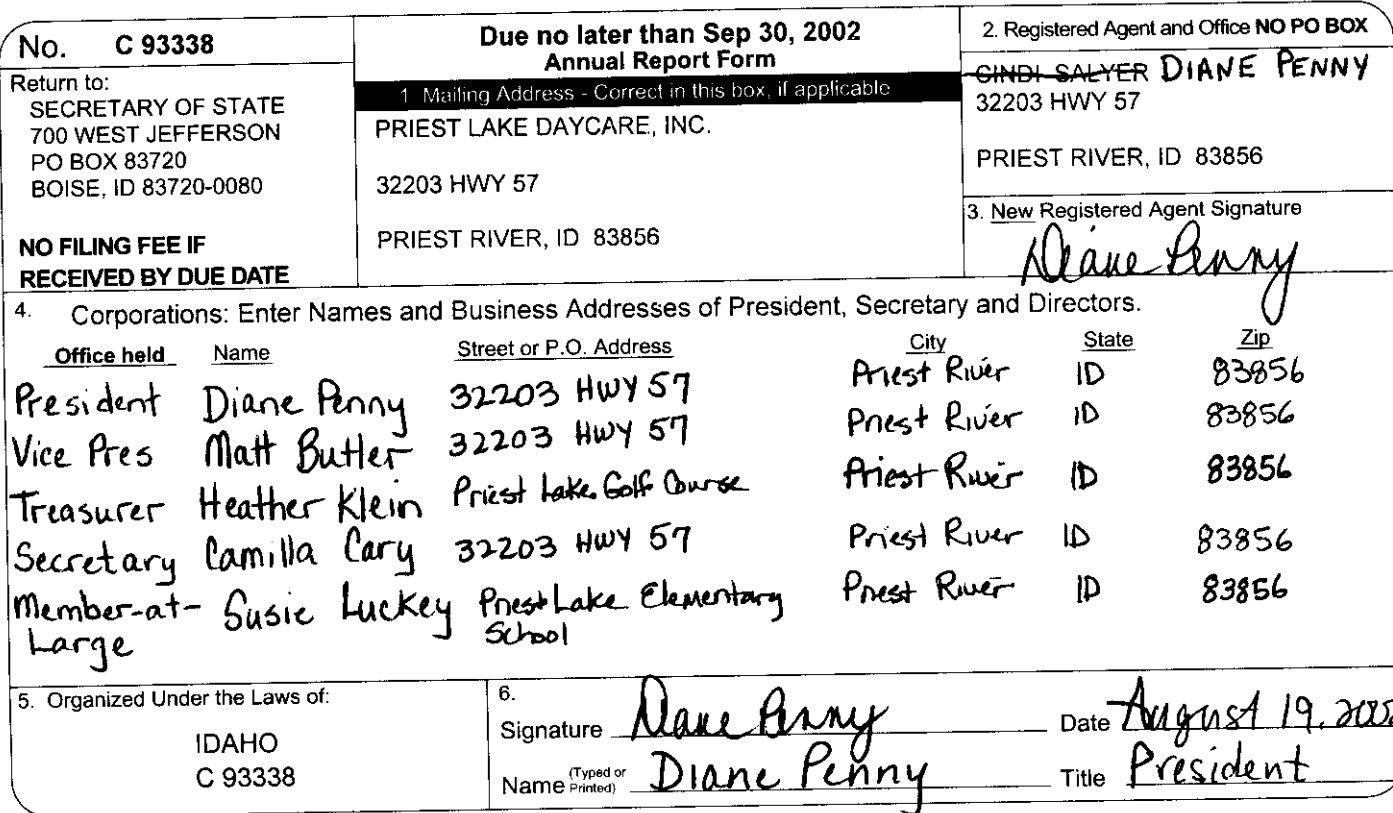 No. C 93338
Return to:
SECRETARY OF STATE
700 WEST JEFFERSON
PO BOX 83720
BOISE, ID 83720-0080
NO FILING FEE IF
RECEIVED BY DUE DATE
Due no later than Sep 30, 2002
Annual Report Form
1 Mailing Address - Correct in this box, if applicable
PRIEST LAKE DAYCARE, INC.
32203 HWY 57
PRIEST RIVER, ID 83856
2. Registered Agent and Office NO PO BOX
CINDI SALYER DIANE PENNY
32203 HWY 57
PRIEST RIVER, ID 83856
3. New Registered Agent Signature
Diane Penny
4. Corporations: Enter Names and Business Addresses of President, Secretary and Directors.
Office held Name Street or P.O. Address City State Zip
President Diane Penny 32203 HWY 57 Priest River ID 83856
Vice Pres Matt Butler 32203 HWY 57 Priest River ID 83856
Treasurer Heather Klein Priest Lake Golf Course Priest River ID 83856
Secretary Camilla Cary 32203 HWY 57 Priest River ID 83856
Member-at- Susie Luckey Priest Lake Elementary Priest River ID 83856
Large School
5. Organized Under the Laws of:
IDAHO
C 93338
6.
Signature Diane Penny Date August 19, 2002
Name (Typed or Printed) Diane Penny Title President